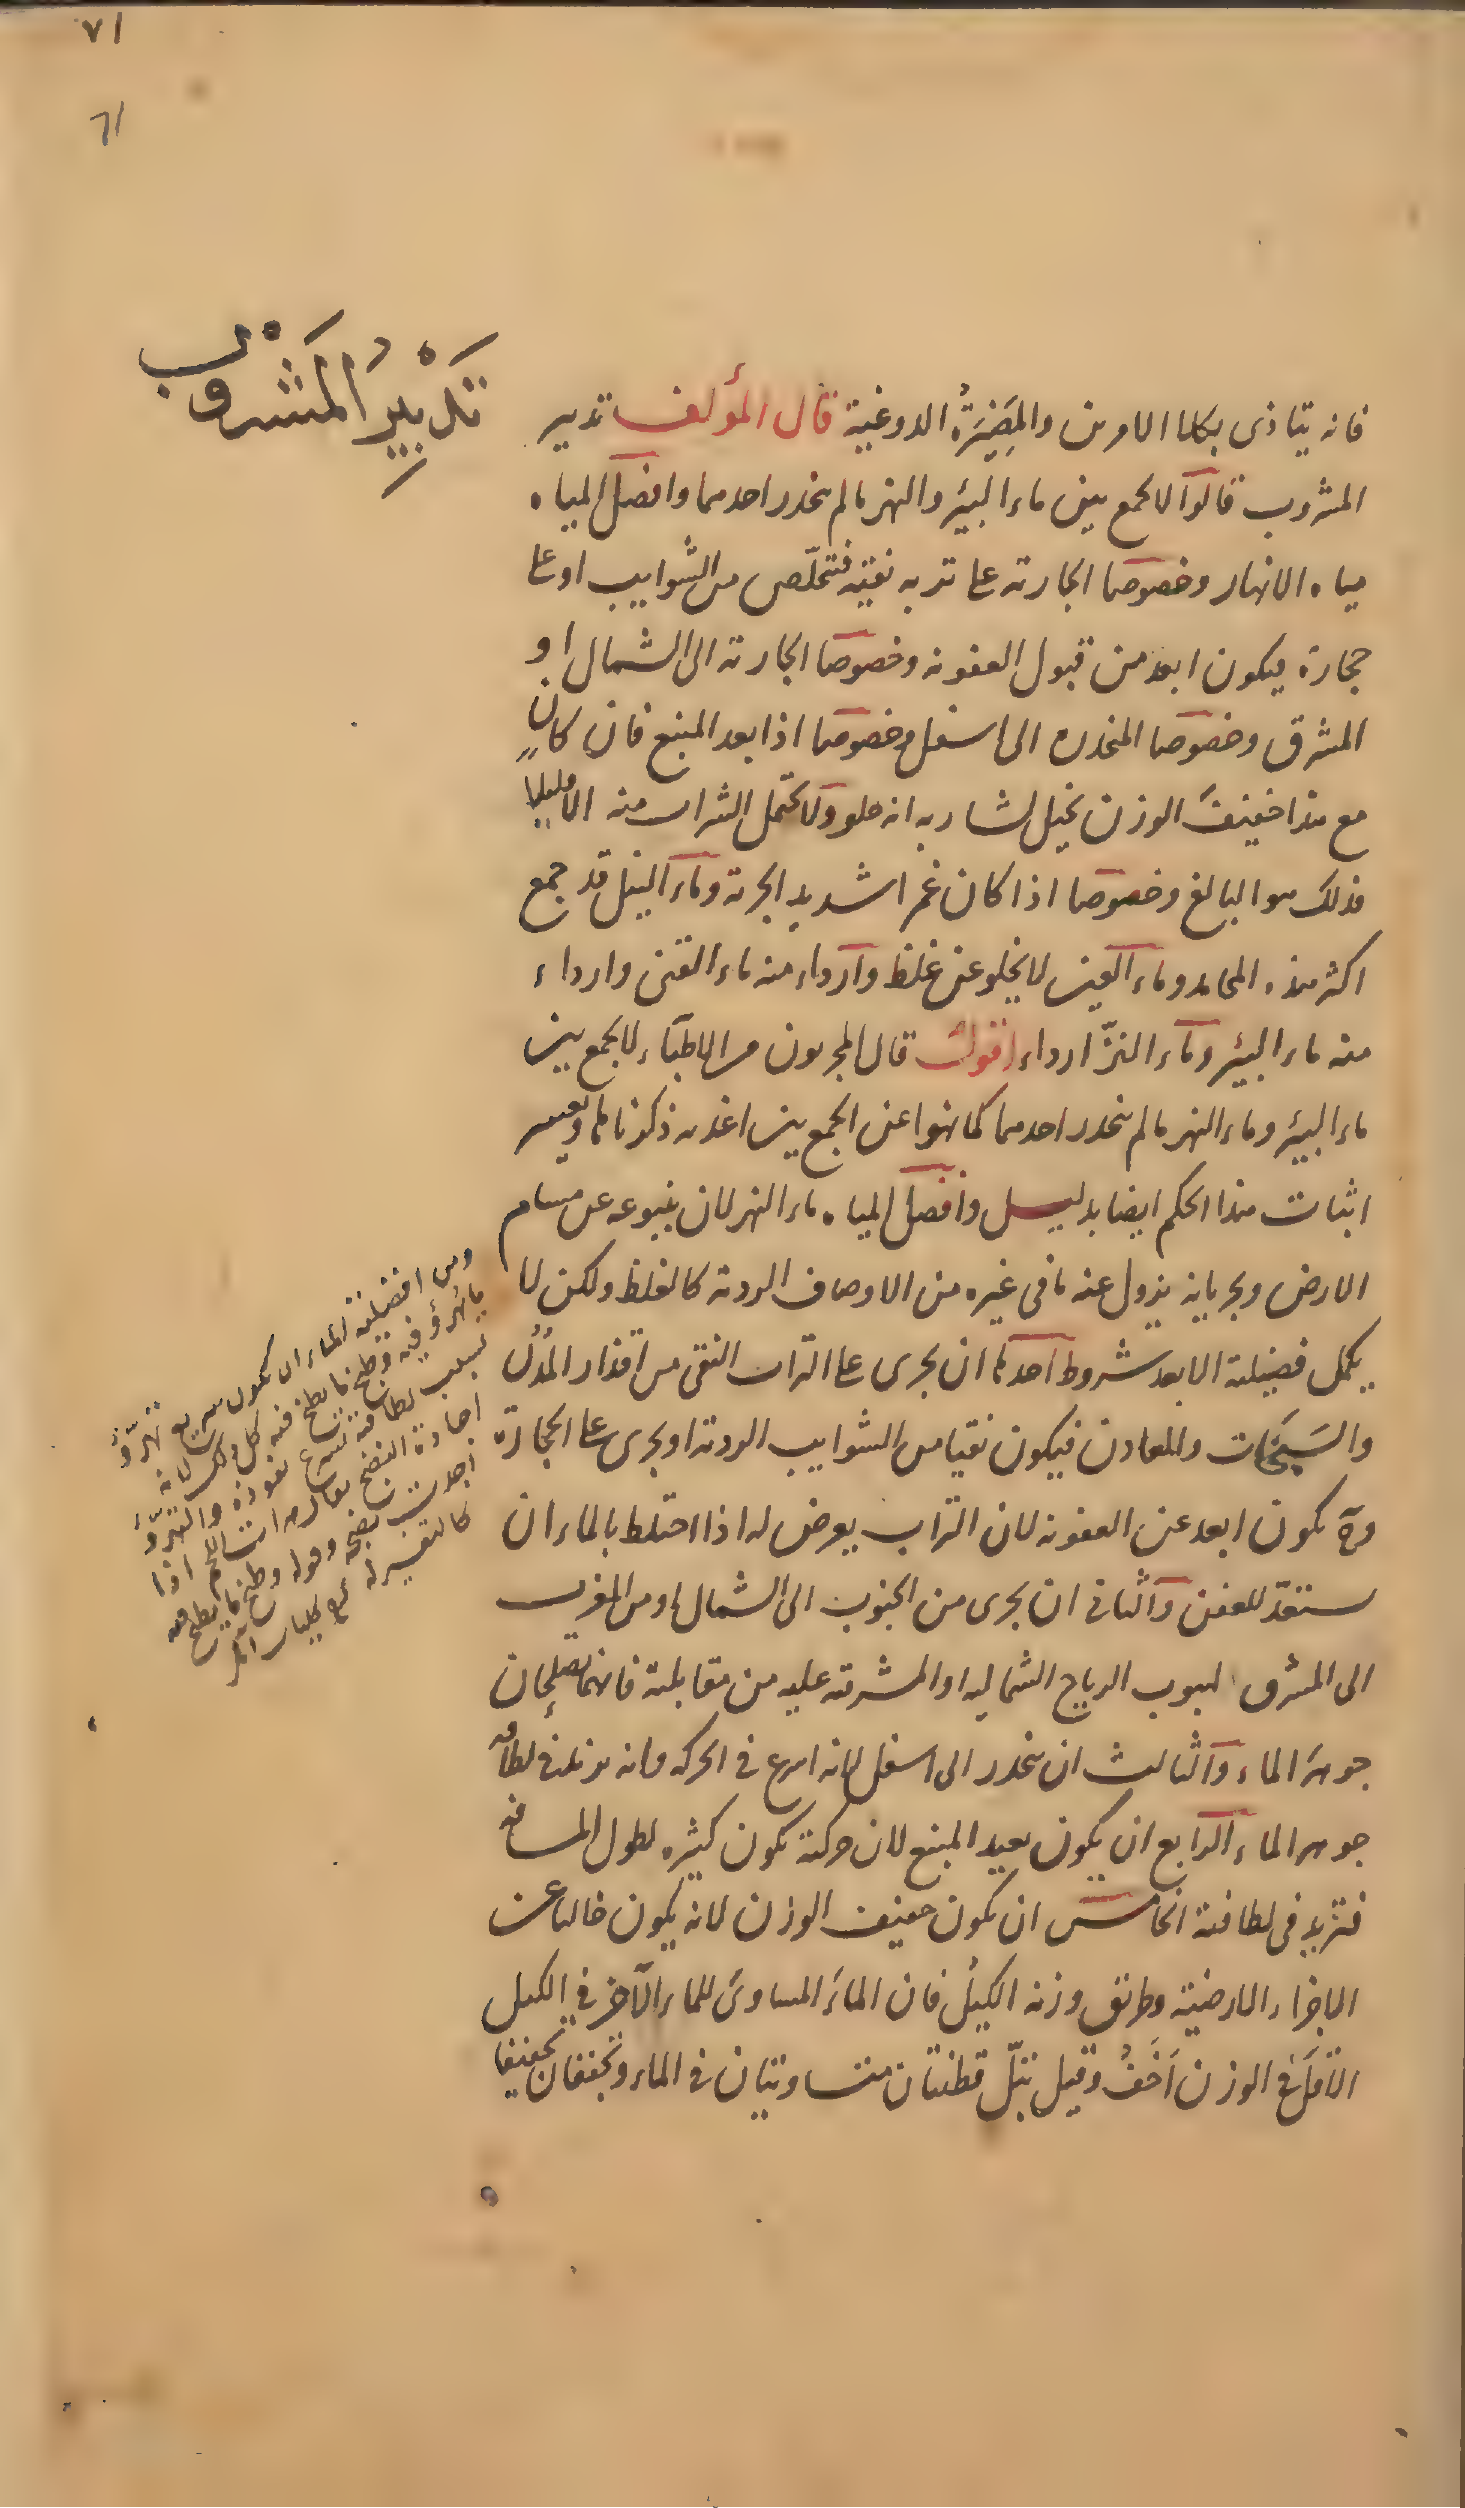 ٧١
71
تَدْبِيرُ المَشْرُوْب
فانه يتاذى بكلا الامرين والمَضِيْرَةُ الدوغية قال المؤلف تدبير
المشروب قالوا لا يجمع بين ماء البئر والنهر ما لم ينحدر احدهما وافضل المياه
مياه الانهار وخصوصا الجارية على تربه نقية فتتخلّص من الشوايب او على
حجارة فيكون ابعد من قبول العفونه وخصوصا الجارية الى الشمال او
المشرق وخصوصا المنحدره الى اسفل وخصوصا اذا بعد المنبع فان كان
مع هذا خفيفَ الوزن يخيل لشاربه انه حلو ولا يحتمل الشراب منه الا قليلا
فذلك هو البالغ وخصوصا اذا كان غمرا شديد الجرية وماء النيل قد جمع
اكثر هذه المحامد وماء العين لا يخلو عن غلظ وارداء منه ماء القنى وارداء
منه ماء البئر وماء النزّ ارداء اقول قال المجربون من الاطباء لا يجمع بين
ماء البئر وماء النهر ما لم ينحدر احدهما كما نهوا عن الجمع بين اغذيه ذكرناها ويعسر
اثبات هذا الحكم ايضا بدليل وافضل المياه ماء النهر لان ينبوعه عن مسام
الارض وبجريانه يزول عنه ما فى غيره من الاوصاف الردية كالغلظ ولكن لا
يكمل فضيلته الا بعد شروط احدها ان يجرى على التراب النقى من اقذار المُدُن
والسَبَخات والمعادن فيكون نقيا من الشوايب الردية او يجرى على الحجارة
وح يكون ابعد عن العفونه لان التراب يعرض له اذا اختلط بالماء ان
يستعدّ للعفن والثانى ان يجرى من الجنوب الى الشمال او من المغرب
الى المشرق لهبوب الرياح الشماليه او المشرقية عليه من مقابلته فانهما تصلحان
جوهرَ الماء والثالث ان ينحدر الى اسفل لانه اسرع فى الحركه وانه يزيد فى لطافة
جوهر الماء الرابع ان يكون بعيد المنبع لان حركته تكون كثيره لطول المسافه
فتزيد فى لطافته الخامس ان يكون خفيف الوزن لانه يكون خاليا عن
الاجزاء الارضية وطريق وزنه الكيل فان الماءَ المساوىَ للماء الآخر فى الكيل
الاقلَّ فى الوزن اَخَفُّ وقيل تبلّ قطنتان متساويتان فى الماء وتجففان تجفيفا
ومن افضلية الماء ان يكون سريع تهرّؤ
ما يُهرؤ فيه وطبخ ما يطبخ فيه كل ذلك لانه
بسبب لطافته يسرع نفوذه والتهرّؤ
اجادة النضج يقال هرات اللحم اذا
اجدت نضجه وقوله وطبخ ما يطبخ فيه
كالتفسير له